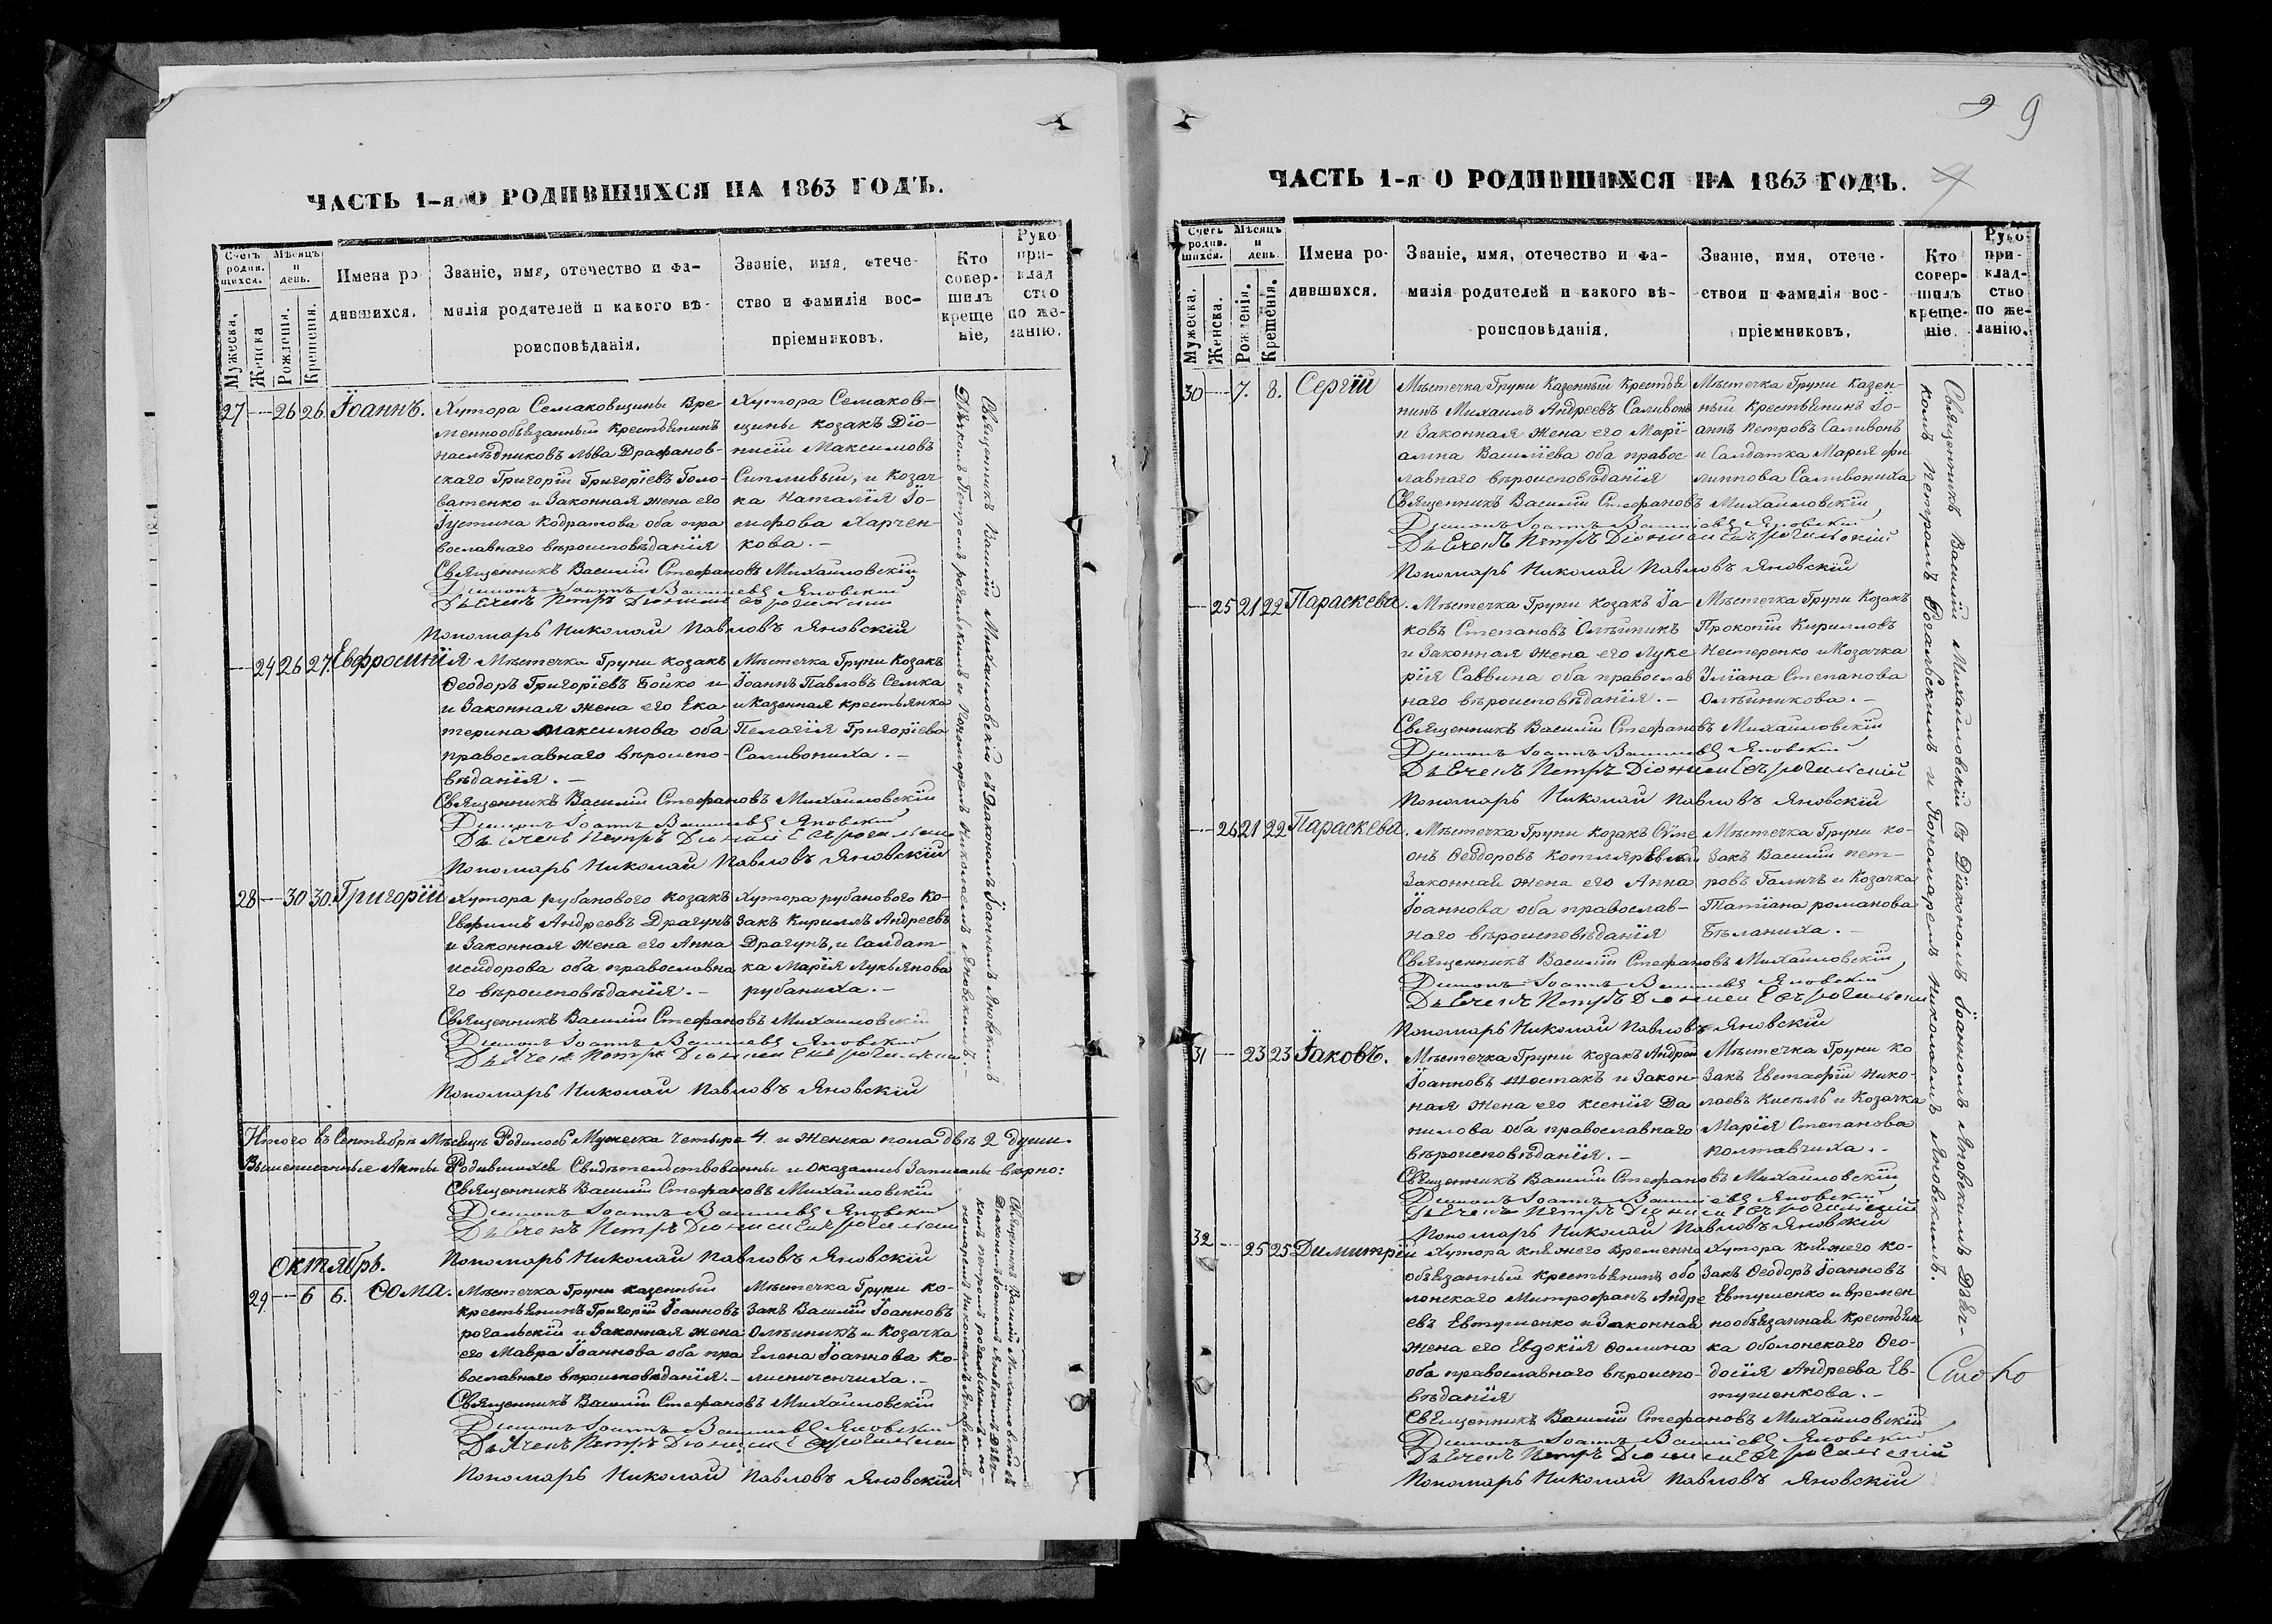 ЧАСТЬ 1-я О РОДИВШИХСЯ НА 1863 ГОДЪ.
Счетъ родив. шихся.
Мѣсяцъ и день.
Мужеска.
Женска
Рожденія.
Крещенія.
Имена ро-
дившихся.
Званіе, имя, отечество и фа-
милія родителей и какого вѣ-
роисповѣданія.
Званіе, имя, отече-
ство и фамилія вос-
пріемниковъ.
Кто совер-
шилъ креще
ніе,
Руко
при-
клад
ство
по же-
ланію.
27 — 26 26. Іоаннъ.
Хутора Семаковщины Вре
меннообѣзанный крестьянинъ
наслѣдниковъ Льва Драфанов-
скаго Григорій Григоріевъ Голо-
ватенко и Законная жена его
Іустина Кодратова оба пра
вославнаго вѣроисповѣданія
Хутора Семаков-
щины козакъ Діо-
нисій Максимовъ
Сипливый, и Козач
ка Наталія Іо-
сифова Харчен-
кова. —
Священникъ Василій Стефановъ Михайловскій
Діаконъ Іоаннъ Васильевъ Яновскій
Дьячекъ Петръ Діонисіевъ рогальскій
Пономарь Николай Павловъ Яновскій
— 24 26 27. Евфросинія
Мѣстечка Груни козакъ
Ѳеодоръ Григоріевъ Бойко и
и Законная жена его Ека
терина Максимова оба
православнаго вѣроиспо-
вѣданія. —
Мѣстечка Груни Козакъ
Іоаннъ Павловъ Семка
и Казенная крестьянка
Пелагія Григоріева
Саливониха. —
Священникъ Василій Стефановъ Михайловскій
Діаконъ Іоаннъ Васильевъ Яновскій
Дьячекъ Петръ Діонисіевъ рогальскій
Пономарь Николай Павловъ Яновскій
28 — 30 30. Григорій
Хутора рубанового козакъ
Евфимъ Андреевъ Драгунъ
и Законная жена его Анна
Исидорова оба православна
го вѣроисповѣданія. —
Хутора рубанового Ко-
закъ Кириллъ Андреевъ
Драгунъ, и Салдат-
ка Марія Лукьянова
рубаниха. —
Священникъ Василій Стефановъ Михайловскій
Діаконъ Іоаннъ Васильевъ Яновскій
Дьячекъ Петръ Діонисіевъ рогальскій
Пономарь Николай Павловъ Яновскій
Священникъ Василій Михайловскій съ Діакономъ Іоанномъ Яновскимъ
Дьячкомъ Петромъ рогальскимъ и Пономаремъ Николаемъ Яновскимъ. —
Итого въ Сентябрѣ Мѣсяцѣ Родилось Мужеска четыре 4. и женска пола двѣ 2 души.
Вышеписанные Акты Родившихся Свидѣтельствованны и оказались Записаны вѣрно:
Священникъ Василій Стефановъ Михайловскій
Діаконъ Іоаннъ Васильевъ Яновскій
Дьячекъ Петръ Діонисіевъ рогальскій
Пономарь Николай Павловъ Яновскій
Октябрь.
29 — 6 6. Ѳома.
Мѣстечка Груни казенный
крестьянинъ Григорій Іоанновъ
рогальскій и Законная жена
его Мавра Іоаннова оба пра
вославнаго вѣроисповѣданія. —
Мѣстечка Груни ко-
закъ Василій Іоанновъ
Олѣйникъ и Козачка
Елена Іоаннова Ко-
лисниченчиха. —
Священникъ Василій Стефановъ Михайловскій
Діаконъ Іоаннъ Васильевъ Яновскій
Дьячекъ Петръ Діонисіевъ рогальскій
Пономарь Николай Павловъ Яновскій
Священникъ Василій Михайловскій съ
Діакономъ Іоанномъ Яновскимъ Дьяч-
комъ Петромъ рогальскимъ и По-
номаремъ Николаемъ Яновскимъ
9 9
ЧАСТЬ 1-я О РОДИВШИХСЯ НА 1863 ГОДЪ.
Счетъ родив. шихся.
Мѣсяцъ и день.
Мужеска.
Женска.
Рожденія.
Крещенія.
Имена ро-
дившихся.
Званіе, имя, отечество и фа-
милія родителей и какого вѣ-
роисповѣданія.
Званіе, имя, отече-
ствои и фамилія вос-
пріемниковъ.
Кто
совер-
шилъ
креще-
ніе.
Руко-
при-
клад-
ство
по же-
ланію.
30 — 7. 8. Сергій
Мѣстечка Груни Казенный Крестья
нинъ Михаилъ Андреевъ Саливонъ
и Законная жена его Марі-
амна Василіева оба правос
лавнаго вѣроисповѣданія
Мѣстечка Груни казен-
ный крестьянинъ Іо-
аннъ Петровъ Саливонъ
и Салдатка Марія Фи
липпова Саливониха
Священникъ Василій Стефановъ Михайловскій
Діаконъ Іоаннъ Васильевъ Яновскій
Дьячекъ Петръ Діонисіевъ рогальскій
Пономарь Николай Павловъ Яновскій
— 25 21 22 Параскева.
Мѣстечка Груни козакъ Іа-
ковъ Степановъ Олѣйникъ
и Законная жена его Луке
рія Саввина оба православ
наго вѣроисповѣданія. —
Мѣстечка Груни Козакъ
Прокопій Кирилловъ
Нестеренко и Козачка
Уліана Степанова
Олѣйникова. —
Священникъ Василій Стефановъ Михайловскій
Діаконъ Іоаннъ Васильевъ Яновскій
Дьячекъ Петръ Діонисіевъ рогальскій
Пономарь Николай Павловъ Яновскій
— 26 21 22 Параскева.
Мѣстечка Груни козакъ Сѵме
онъ Ѳеодоровъ Котляревскій
Законная жена его Анна
Іоаннова оба православ-
наго вѣроисповѣданія
Мѣстечка Груни ко-
закъ Василій пет-
ровъ Галичъ и Козачка
Татіана романова
Бѣланиха. —
Священникъ Василій Стефановъ Михайловскій
Діаконъ Іоаннъ Васильевъ Яновскій
Дьячекъ Петръ Діонисіевъ рогальскій
Пономарь Николай Павловъ Яновскій
31 — 23 23 Іаковъ.
Мѣстечка Груни козакъ Андрей
Іоанновъ Шостакъ и Закон-
ная жена его Ксенія Да
нилова оба православнаго
вѣроисповѣданія. —
Мѣстечка Груни ко
закъ Евстафій Нико-
лаевъ Кисѣль и Козачка
Марія Степанова
Полтавчиха. —
Священникъ Василій Стефановъ Михайловскій
Діаконъ Іоаннъ Васильевъ Яновскій
Дьячекъ Петръ Діонисіевъ рогальскій
Пономарь Николай Павловъ Яновскій
32 — 25 25 Димитрій
Хутора княжего Временно
обѣзанный крестьянинъ обо
лонскаго Митрофанъ Андре
евъ Евтушенко и Законная
жена его Евдокія Ѳомина
оба православнаго вѣроиспо-
вѣданія
Хутора княжего ко-
закъ Ѳеодоръ Іоанновъ
Евтушенко и времен
нообѣзанная крестьян
ка оболонскаго Ѳео-
досія Андреева Ев-
тушенкова. —
Священникъ Василій Стефановъ Михайловскій
Діаконъ Іоаннъ Васильевъ Яновскій
Дьячекъ Петръ Діонисіевъ рогальскій
Пономарь Николай Павловъ Яновскій
Священникъ Василій Михайловскій съ Діакономъ Іоанномъ Яновскимъ Дьяч-
комъ Петромъ Рогальскимъ и Пономаремъ Николаемъ Яновскимъ.